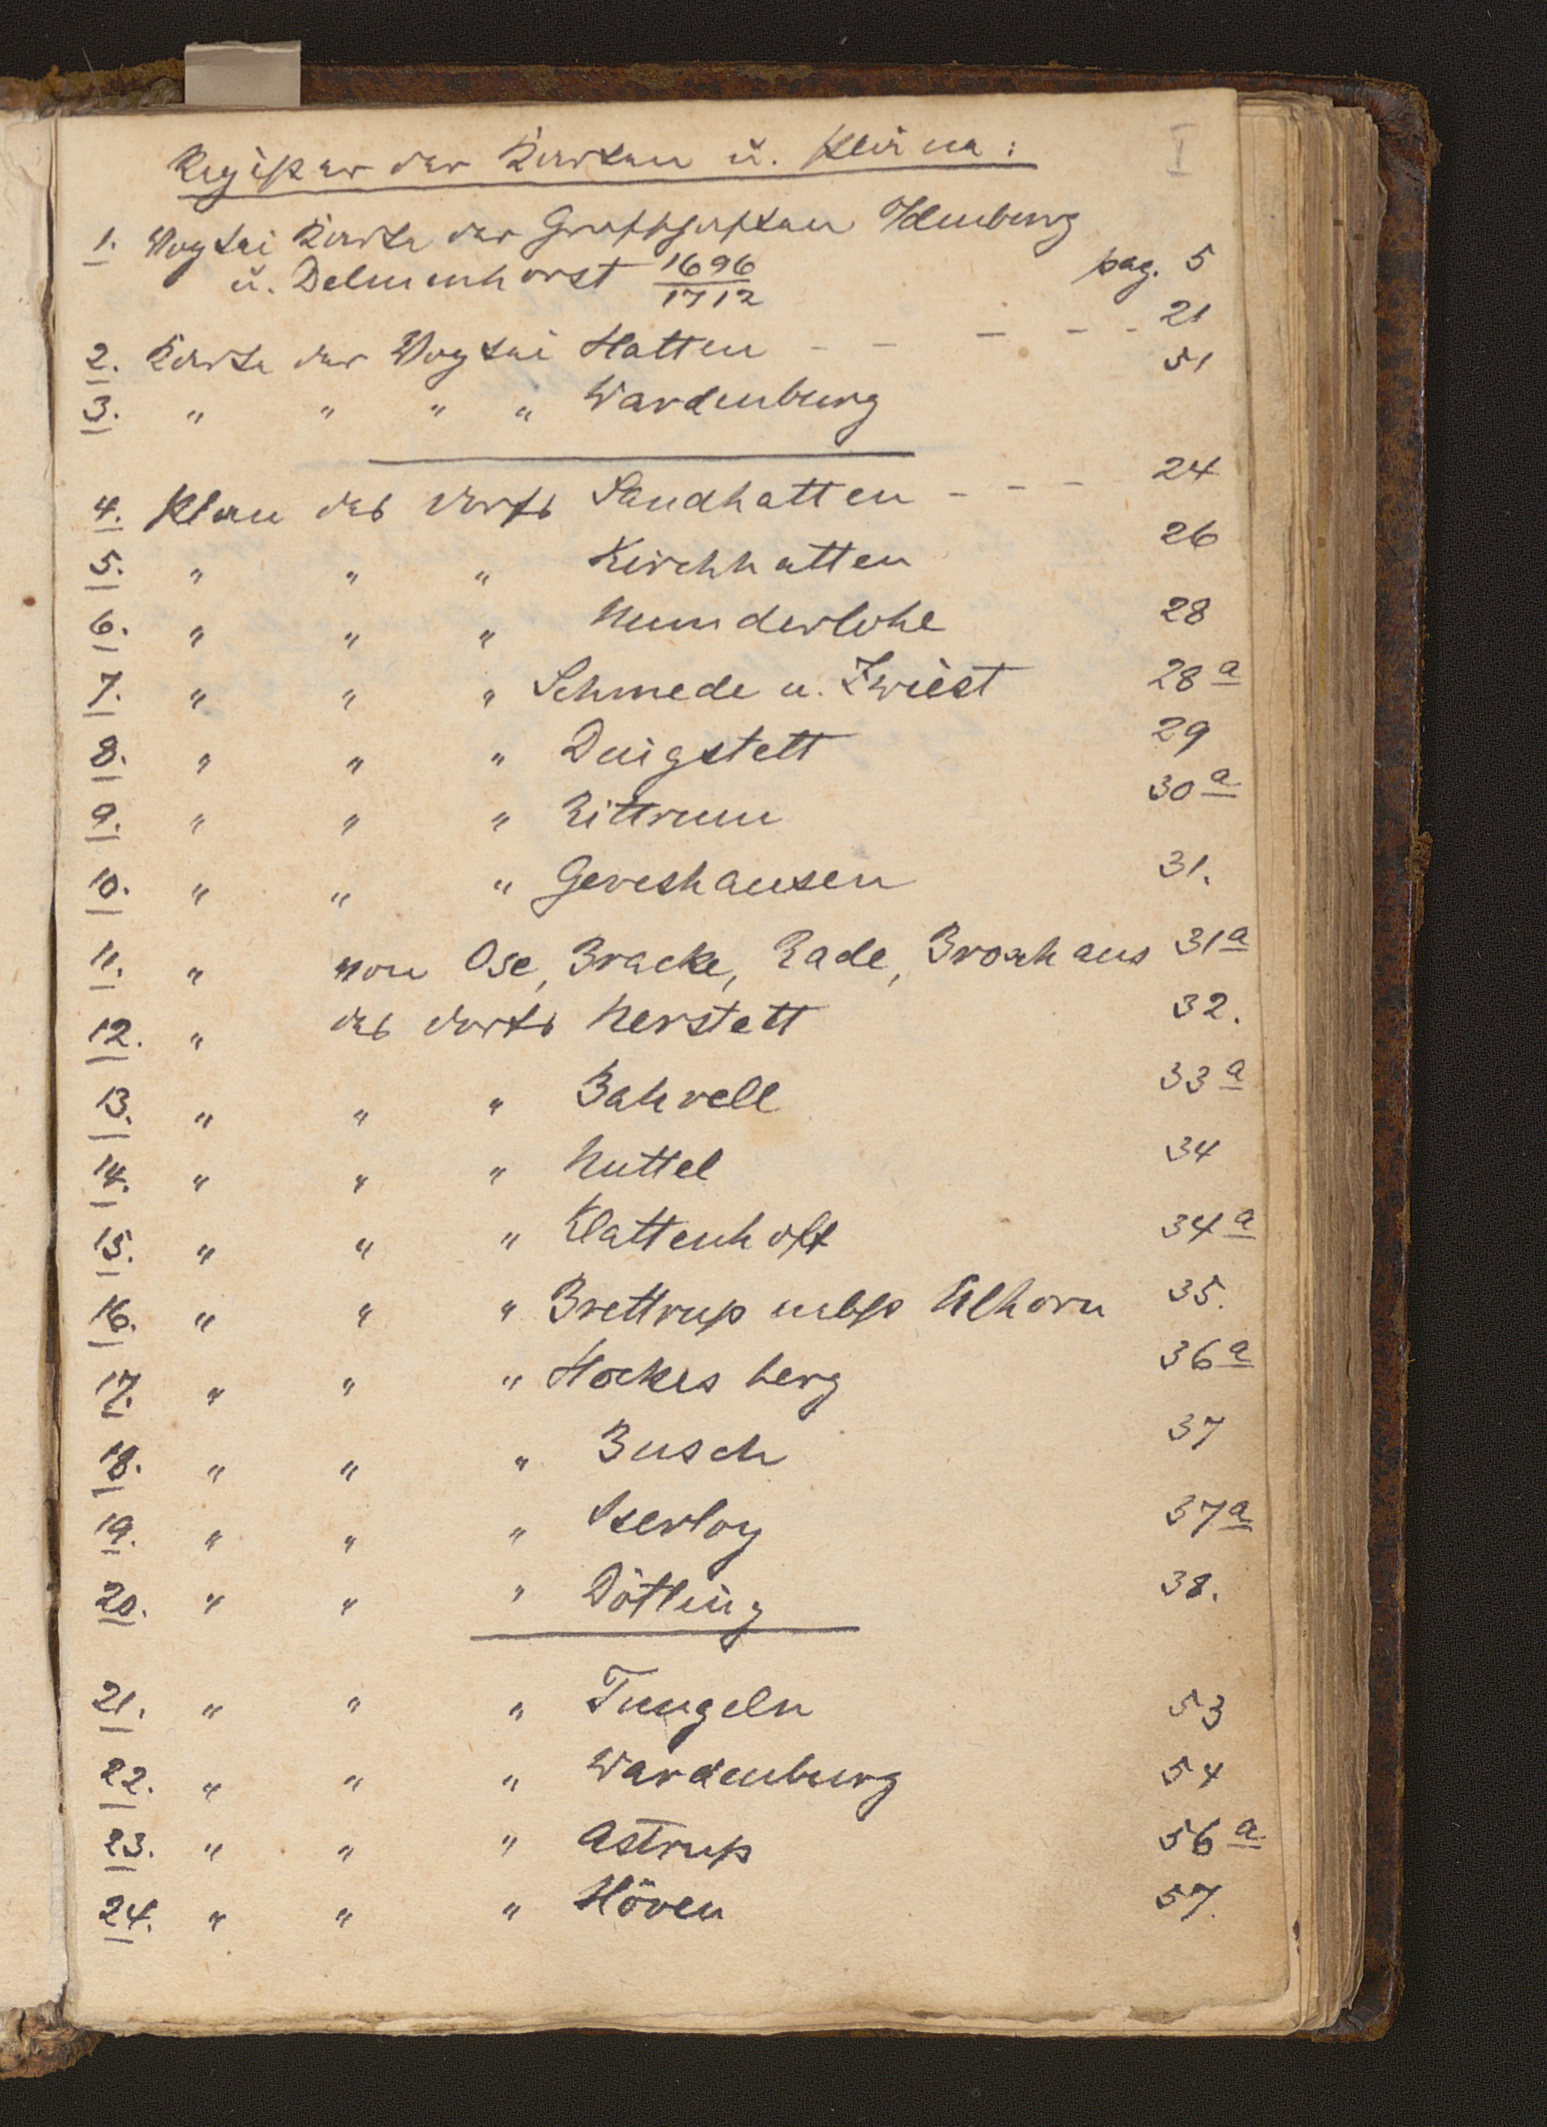 I
Register der Karten u. Pläne:
1. Vogtei Karte der Graffschaften Oldenburg
u. Delmenhorst 1696/1712 pag. 5
2. Karte der Vogtei Hatten - - - - - 21
3. " " " " Wardenburg 51
4. Plan des Dorfs Sandhatten - - - 24
5. " " " Kirchhatten 26
6. " " " Munderlohe 28
7. " " " Schmede u. Zwiest 28 a
8. " " " Dingstett 29
9. " " " Rittrum 30 a
10. " " " Gereshausen 31.
11. " von Ose, Bracke, Rade, Brookhaus 31 a
12. " des Dorfs Nerstett 32.
13. " " " Bahrell 33 a
14. " " " Nuttel 34
15. " " " Klattenhoff 34 a
16. " " " Brettrup nebst Alhorn 35.
17. " " " Hockesberg 36 a
18. " " " Busch 37
19. " " " Iserloy 37 a
20. " " " Dötling 38.
21. " " " Tungeln 53
22. " " " Wardenburg 54
23. " " " Astrup 56 a
24. " " " Höven 57.